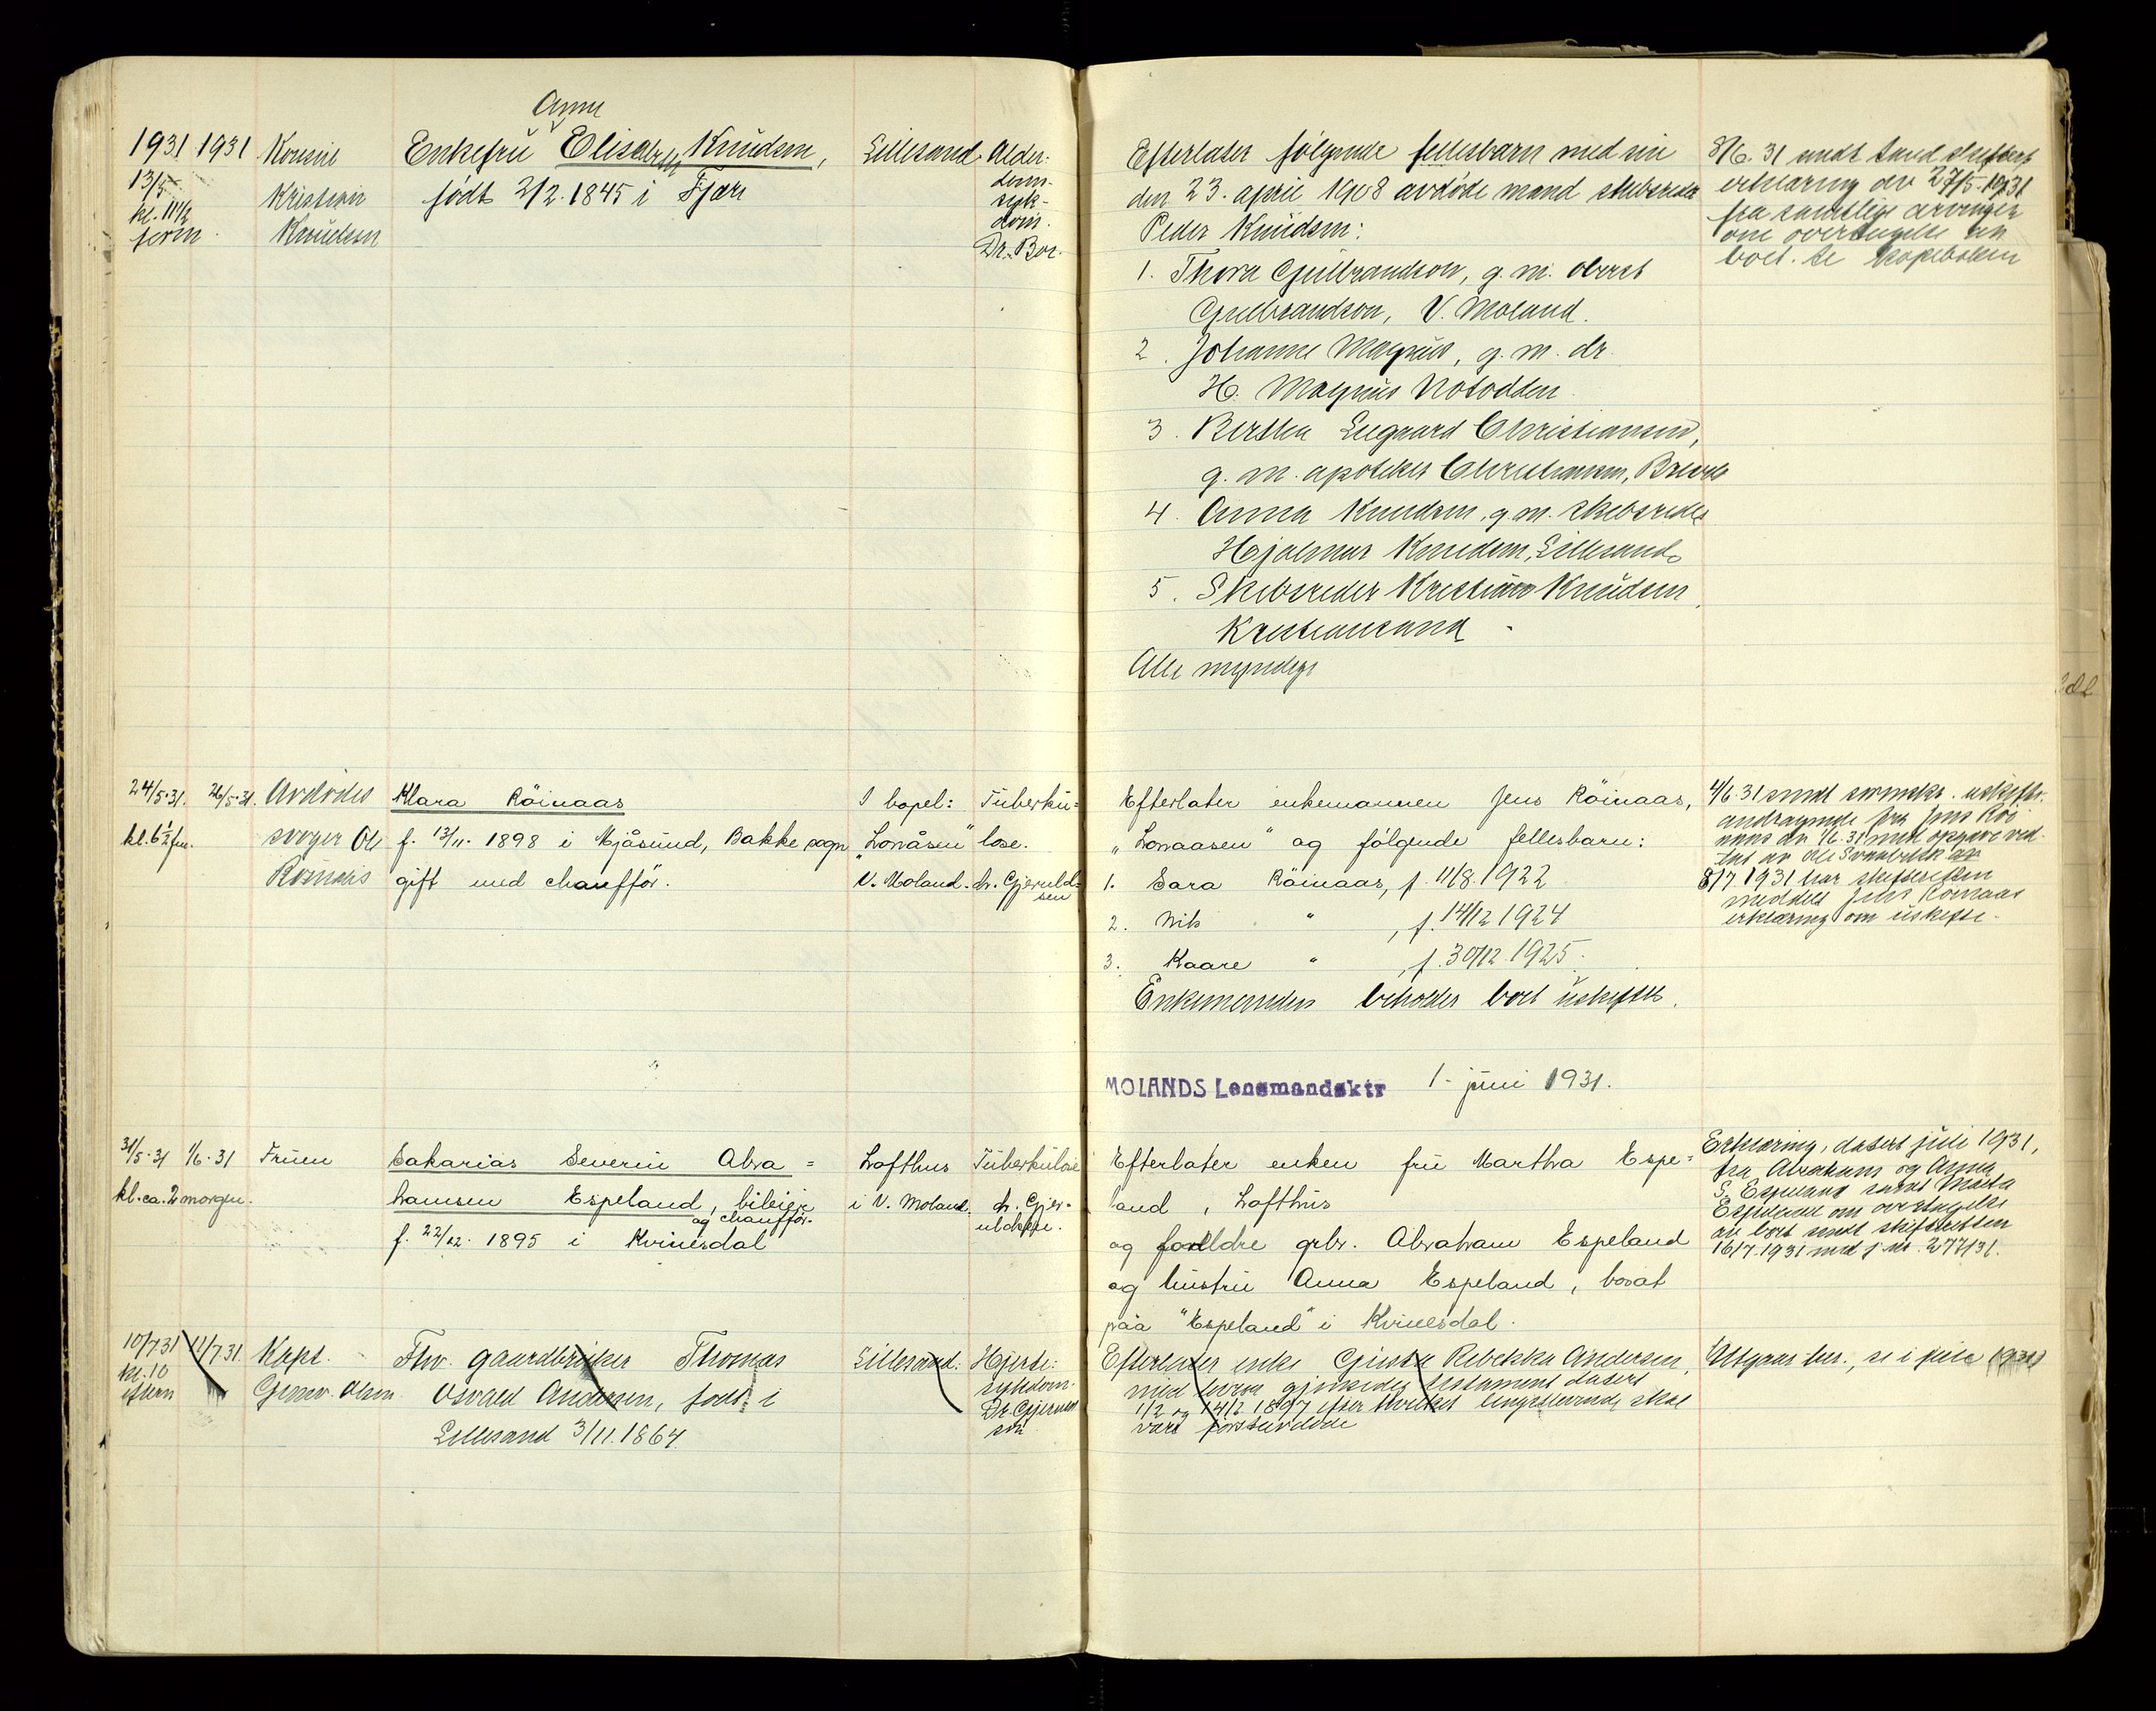 Anna
1931 1931 Konsul Enkefru Elisabeth Knudsen, Lillesand Alder-
13/5 Kristian født 2/2. 1845 i Fjære doms-
kl. 11½ Knudsen syk-
form. dom.
Dr. Bor.
24/5·31. 26/5·31. Avdødes Klara Röinaas I bopel: Tuberku=
kl. 6½ fm. svoger Ole f. 13/11. 1898 i Mjåsund, Bakke sogn "Lonåsen" lose.
Røinaas gift med chauffør. V. Moland. dr. Gjeruld-
sen
31/5·31 1/6·31 Fruen Sakarias Severin Abra= Lofthus Tuberkulose
kl. ca. 2 morgen. hamsen Espeland, bileier i V. Moland. dr. Gjer-
og chauffør. uldsen.
f. 22/12. 1895 i Kvinesdal
10/7 31 11/7.31. Kapt. Fhv. gaardbruker Thomas Lillesand. Hjerte-
kl. 10 Gunv. Olsen Osvald Andersen, født i sykdom.
eftern Lillesand 3/11. 1864 Dr. Gjeruld
sen
Efterlater følgende fellesbarn med sin
den 23. april 1908 avdøde mand skibsreder
Peder Knudsen:
1. Thora Gulbrandson, g. m. oberst
Gulbrandson, V. Moland.
2. Johanne Magnus, g. m. dr.
H. Magnus Notodden
3. Bertha Christiansen,
g. m. apoteker Christiansen, Brevik
4. Anna Knudsen, g. m. skibsreder
Hjalmar Knudsen, Lillesand
5. Skibsreder Kristian Knudsen,
Kristiansand.
Alle myndige
8/6. 31 sendt sand skifteret
erklæring av 27/5-1931
fra samtlige arvinger
om overtagelse av
boet. Se kopiboken
Efterlater enkemannen Jens Röinaas,
"Lonaasen" og følgende fellesbarn:
1. Sara Röinaas, f. 11/8. 1922
2. Nils " , f. 14/12 1924
3. Kaare " , f. 30/12. 1925.
Enkemanden beholder boet uskiftet.
4/6. 31 sendt sorenskr. uskifte-
andragende fra Jens Röi
naas av 1/6. 31 med opgave ved-
tat av Ole
8/7 1931 har skifteretten
meddelt Jens Röinaas
erklæring om uskifte.
MOLANDS Lensmandsktr 1. juni 1931.
Efterlater enken fru Martha Espe=
land, Lofthus
og foreldre grbr. Abraham Espeland
og hustru Anna Espeland, bosat
paa "Espeland" i Kvinesdal.
Erklæring, datert juli 1931,
fra Abraham og Anna
S. Espeland samt Marta
Espeland om overtagelse
av boet sendt skifteretten
16/7. 1931 med j. nr. 277/31.
Efterlater enke Gusta Rebekka Andersen,
med hvem gjensidig testament datert
1/2 og 14/2 1897 efter hvilket lengstlevende skal
være
Utgaar her, se i juli (1931)